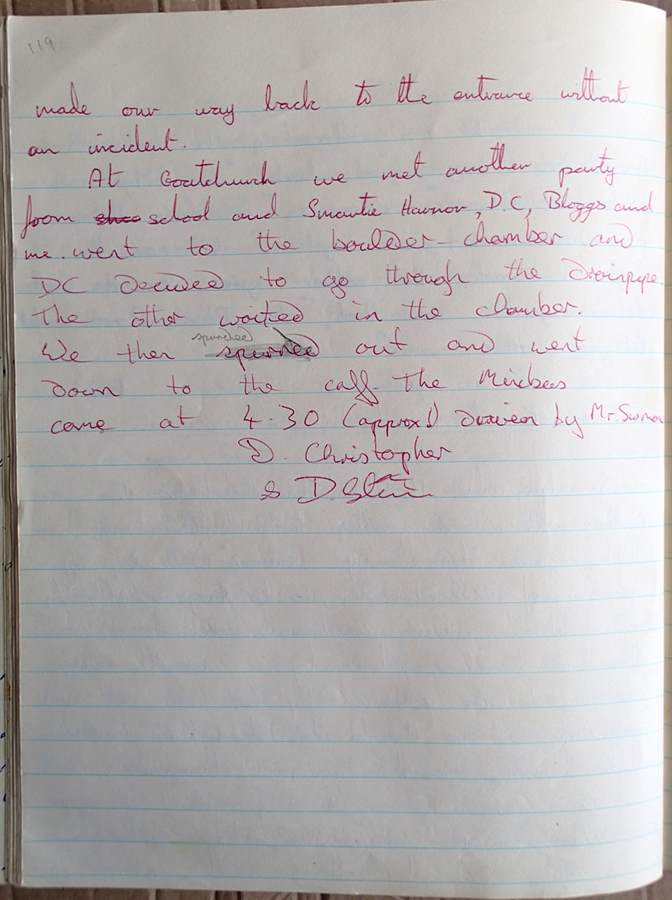 119
made our way back to the entrance without
an incident.
At Goatchurch we met another party
from school and Smartie Harnor, D.C, Bloggs and
me. went to the boulder-chamber and
DC decided to go through the Drainpipe
The other waited in the chamber.
spurded
We then out and went
down to the caff. The Minibus
came at 4.30 (approx!) driven by Mr.
D. Christopher
& D.